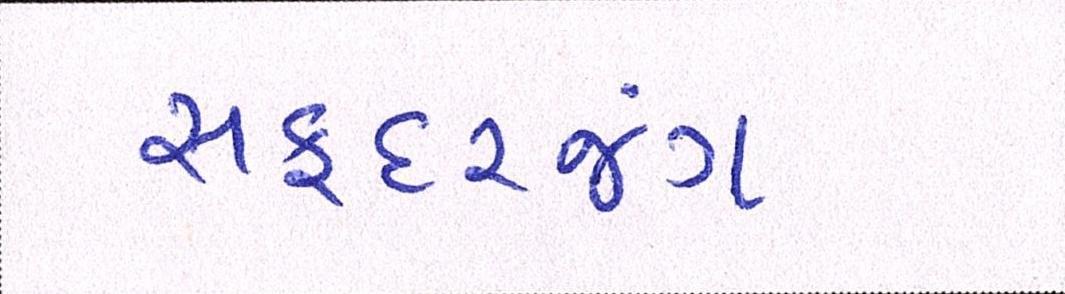 સફદરજંગ